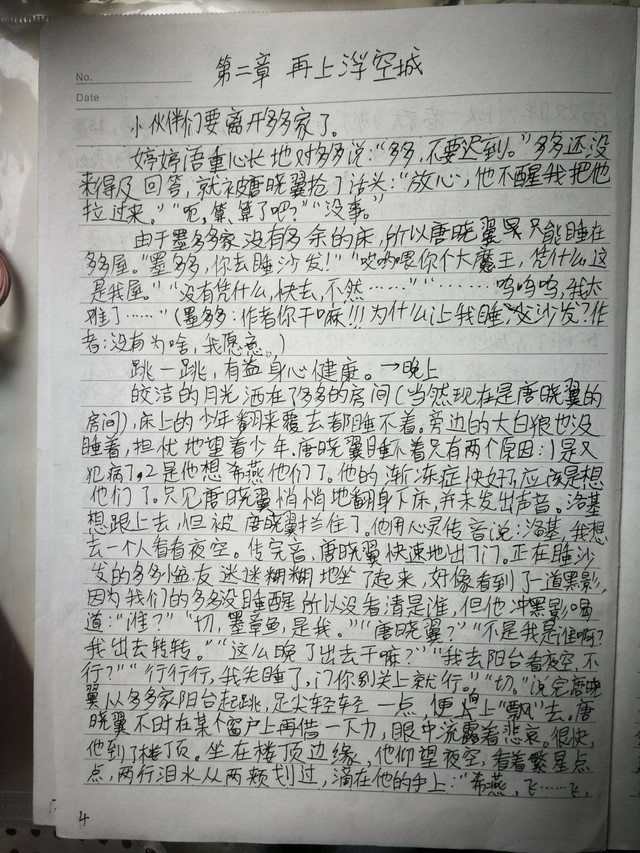 第二章 再上浮空城
No.
Date
小伙伴们要离开多多家了。
婷婷语重心长地对多多说：“多多，不要迟到。”多多还没
来得及回答，就被唐晓翼抢了话头：“放心，他不醒我把他
拉过来。”“呃，算、算了吧？”“没事。”
由于墨多多家没有多余的床，所以唐晓翼只能睡在
多多屋。“墨多多，你去睡沙发！”“哎哟喂你个大魔王，凭什么，这
是我屋。”“没有凭什么，快去，不然……”“……呜呜呜，我太
难了……”（墨多多：作者你干嘛！！！为什么让我睡沙发？作
者：没有为啥，我愿意。）
跳一跳，有益身心健康。→晚上
皎洁的月光洒在了多多的房间（当然现在是唐晓翼的
房间），床上的少年翻来覆去都睡不着。旁边的大白狼也没
睡着，担忧地望着少年。唐晓翼睡不着只有两个原因：1是又
犯病了，2是他想希燕他们了。他的渐冻症快好了，应该是想
他们了。只见唐晓翼悄悄地翻身下床，并未发出声音。洛基
想跟上去，但被唐晓翼拦住了。他用心灵传音说：洛基，我想
去一个人看看夜空。传完音，唐晓翼快速地出了门。正在睡沙
发的多多小盆友迷迷糊糊地坐了起来，好像看到了一道黑影，
因为我们的多多没睡醒所以没看清是谁，但他冲黑影喝
道：“谁？”“切，墨章鱼，是我。”“唐晓翼？”“不是我是谁啊？
我出去转转。”“这么晚了出去干嘛？”“我去阳台看夜空，不
行？”“行行行，我先睡了，门你别关上就行。”“切。”说完唐晓
翼从多多家阳台起跳，足尖轻轻一点，便向上“飘”去。唐
晓翼不时在某个窗户上再借一下力，眼中流露着悲哀。很快，
他到了楼顶。坐在楼顶边缘，他仰望夜空，看着繁星点
点，两行泪水从两颊划过，滴在他的手上：“希燕，飞……飞，
4